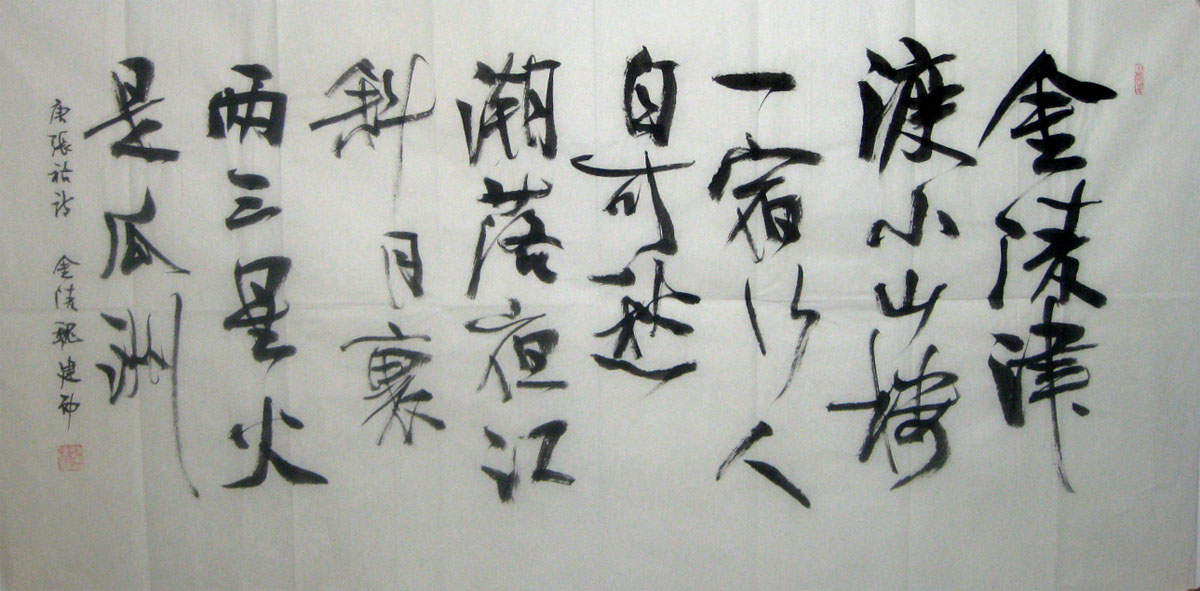 金陵津
渡小山樓
一宿行人
自可愁
潮落夜江
斜月裏
两三星火
是瓜洲
唐張祜詩 金陵魏建